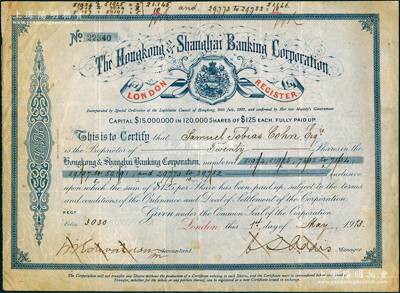 and 29773 to 29782 = 
No 22840
The Hongkong & Shanghai Banking Corporation.
LONDON REGISTER
Incorporated by Special Ordinance of the Legislative Council of Hongkong, and confirmed by Her late Majesty's Government
CAPITAL $15,000,000 IN 120,000 SHARES OF $125 EACH, FULLY PAID UP.
This is to Certify that Samuel Tobias Cohn Esqre
is the Proprietor of Twenty Shares in the
Hongkong & Shanghai Banking Corporation, numbered
and 29773 to 29782 inclusive
upon which the sum of $125 per Share has been paid up, subject to the terms
and conditions of the Ordinance and Deed of Settlement of the Corporation.
Given under the Common Seal of the Corporation.
REGR
Folio 3030
London: this 1st day of May 1913.
Accountant
Manager
The Corporation will not transfer any Shares without the production of a Certificate relating to such Shares, and the Certificate must be surrendered before any Deed of
Transfer, whether for the whole or any portion thereof, can be registered or a new Certificate issued in exchange.